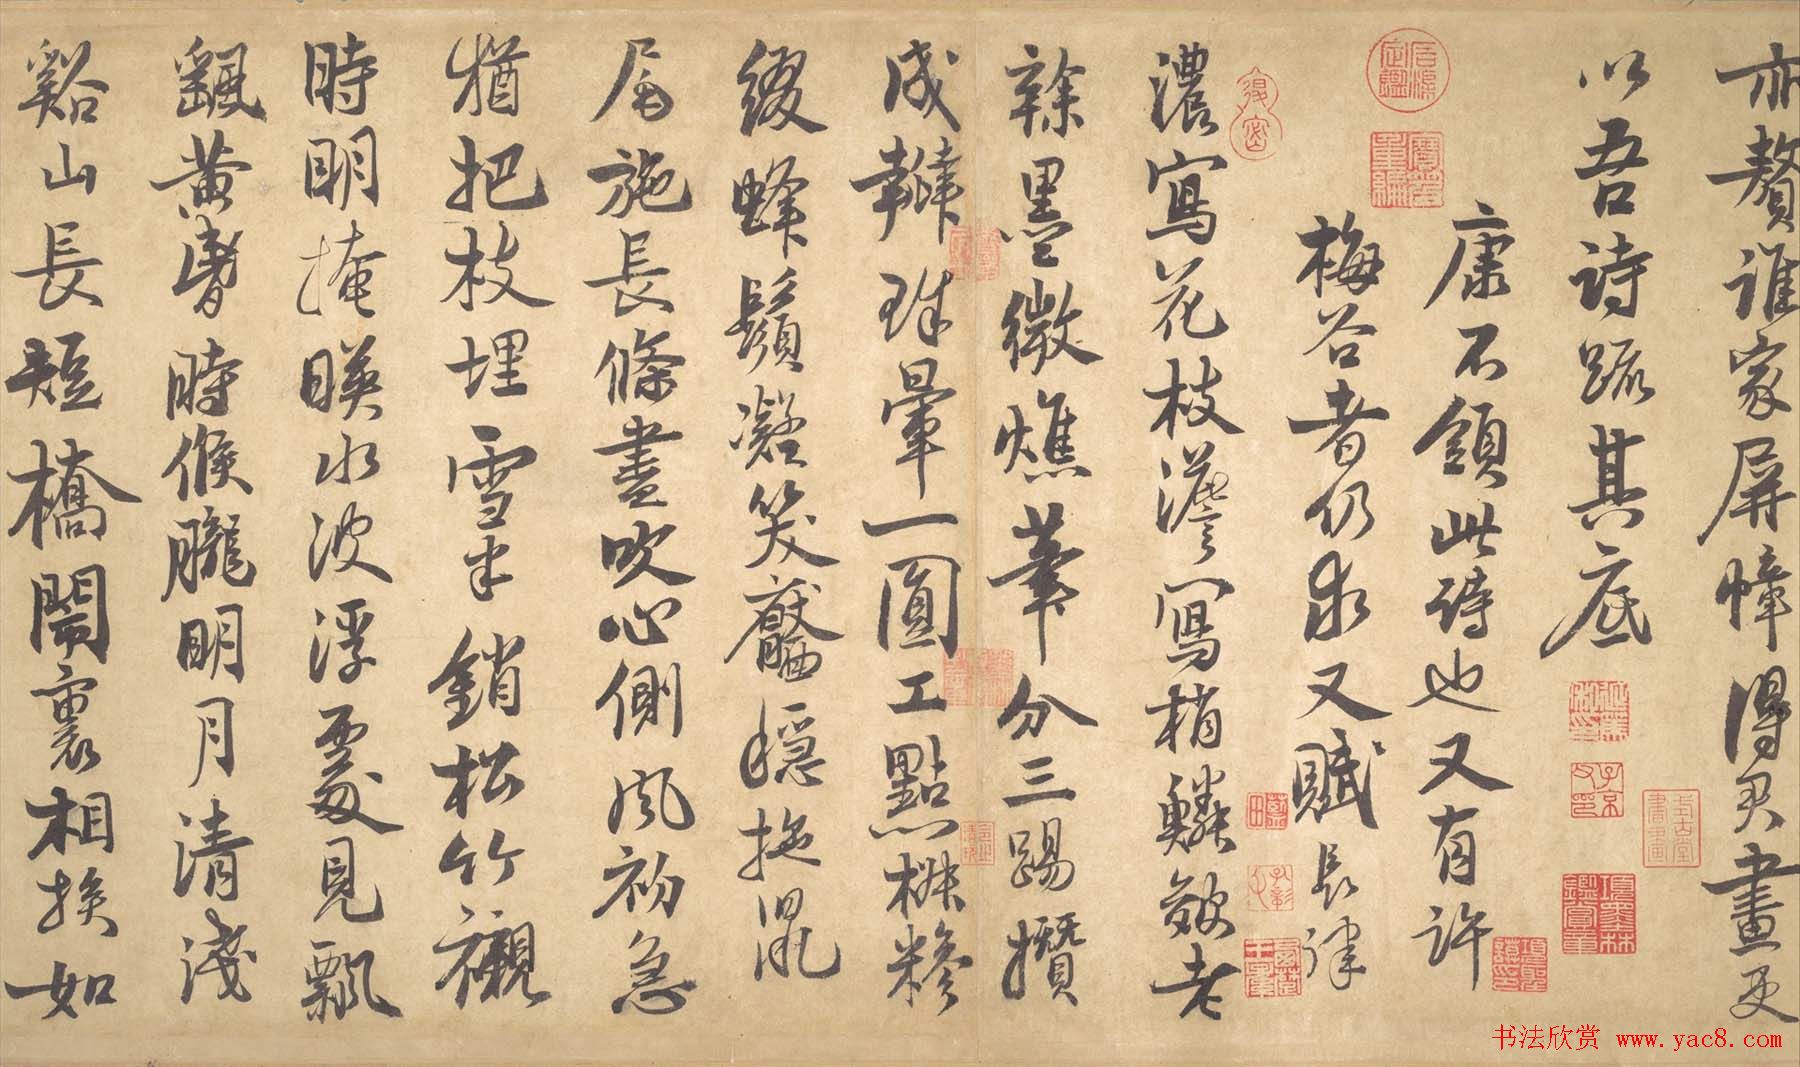 亦贅誰家屏幛得君畫更
以吾詩疏其底
康不領此詩也又有許
梅谷者仍求又賦長律
濃寫花枝淡寫梢鱗皴老
榦墨微燋筆分三踢攢
成瓣珠暈一圓工點椒糝
綴蜂鬚凝笑靨穩拖鼠
尾施長條盡吹心側風初急
猶把枝埋雪半銷松竹襯
時明掩映水波浮處見飄
飖黃昏時候朧明月清淺
谿山長短橋鬧裏相挨如
式古堂書畫
子京父印
項墨林鑑賞章
书法欣赏 www.yac8.com